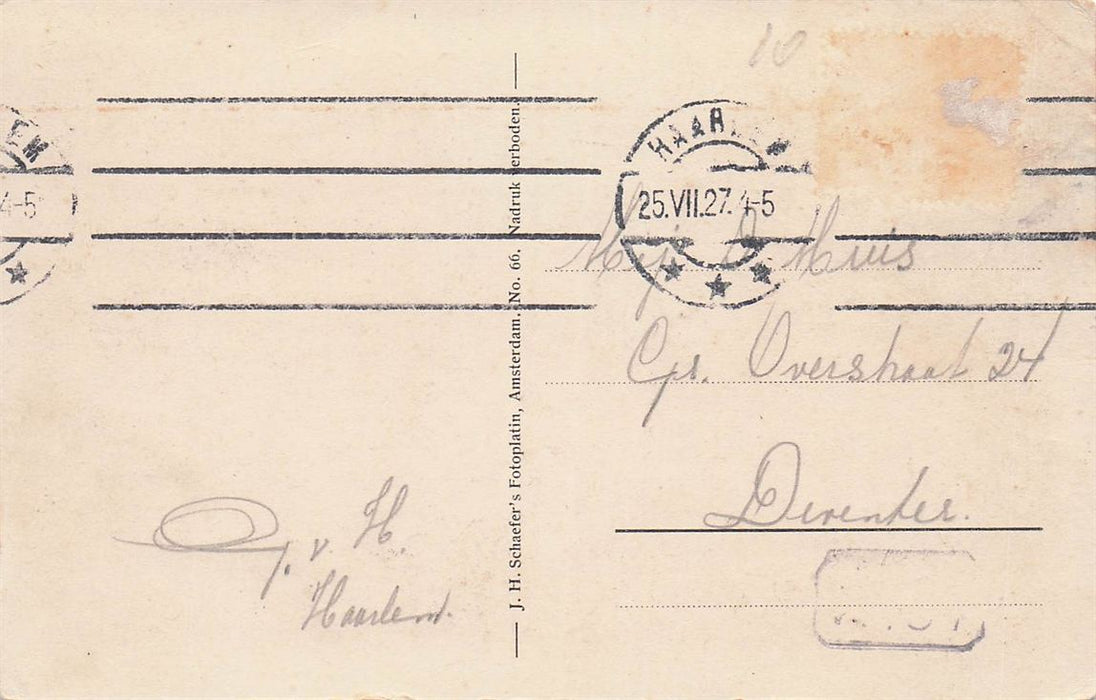 10
EM
4-5
HAARLEM
25.VII.27. 4-5
Mej. Muis
Gps. Overstraat 24
Deventer.
J. H. Schaefer's Fotoplatin, Amsterdam. No. 66. Nadruk verboden.
v. H.
Haarlem.